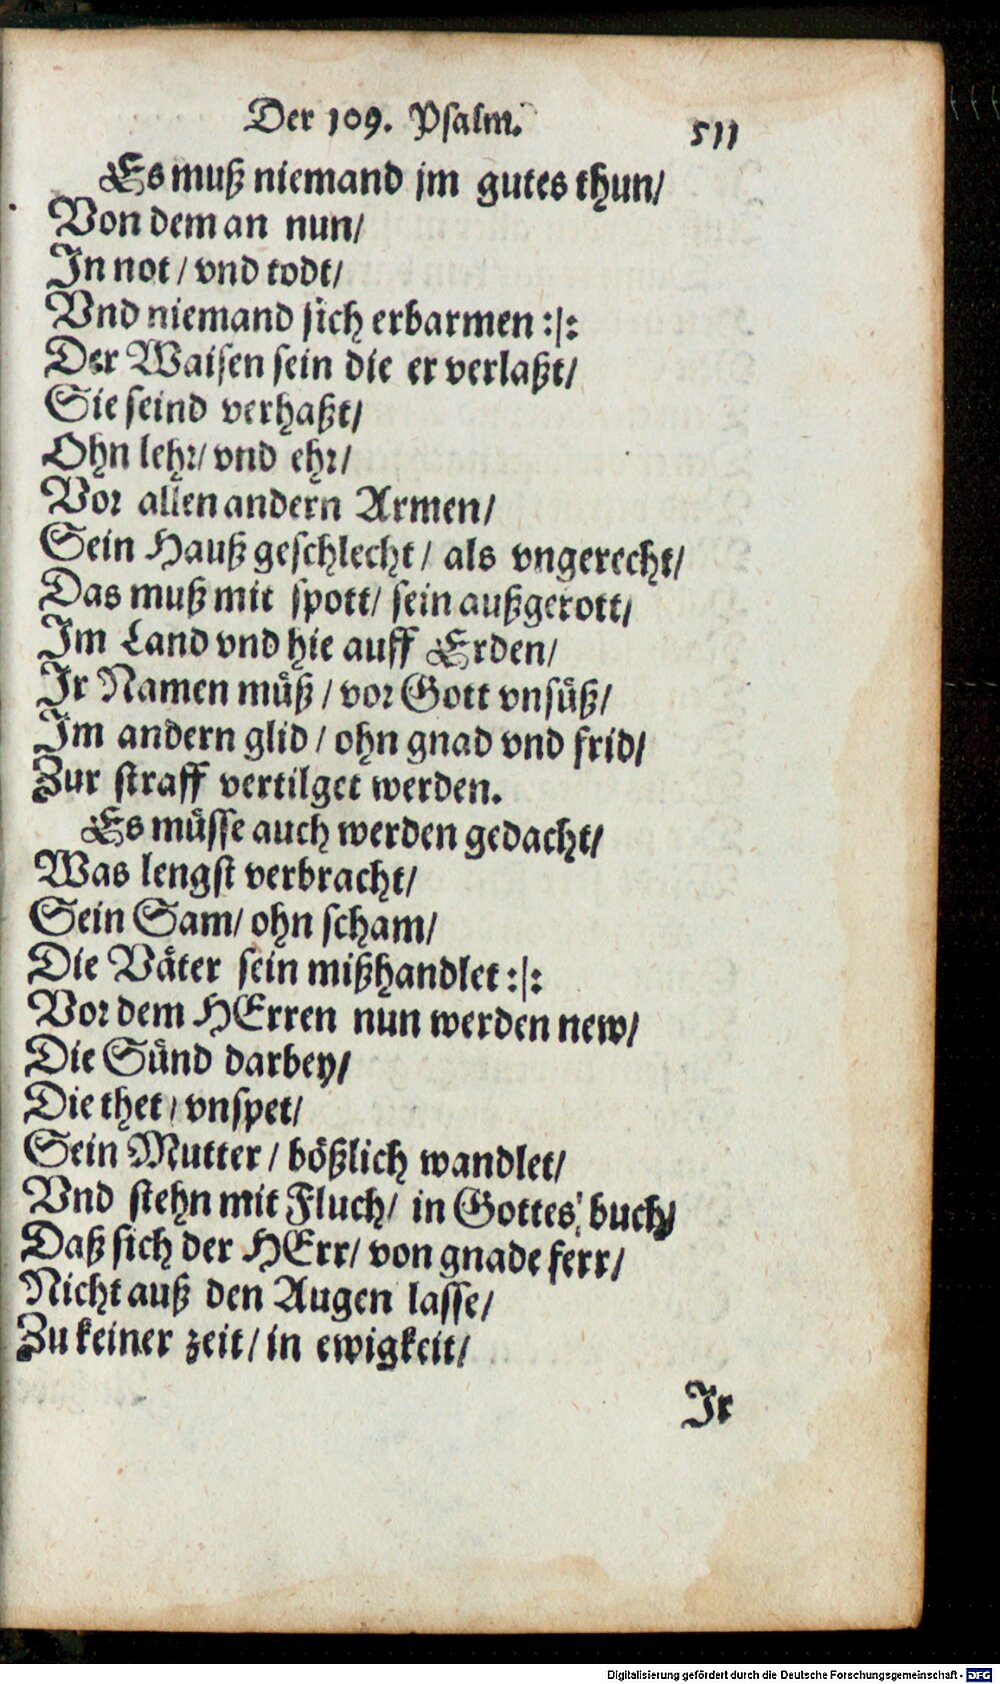 Der 109. Psalm.
511
Es muß niemand jm gutes thun/
Von dem an nun/
In not / vnd todt/
Vnd niemand sich erbarmen :|:
Der Waisen sein die er verlaßt/
Sie seind verhaßt/
Ohn lehr/ vnd ehr/
Vor allen andern Armen/
Sein Hauß geschlecht / als vngerecht/
Das muß mit spott/ sein außgerott/
Im Land vnd hie auff Erden/
Ir Namen müß / vor Gott vnsüß/
Im andern glid / ohn gnad vnd frid/
Zur straff vertilget werden.
Es müsse auch werden gedacht/
Was lengst verbracht/
Sein Sam/ ohn scham/
Die Väter sein mißhandlet :|:
Vor dem HErren nun werden new/
Die Sünd darbey/
Die thet / vnspet/
Sein Mutter / bößlich wandlet/
Vnd stehn mit Fluch/ in Gottes buch/
Daß sich der HErr/ von gnade ferr/
Nicht auß den Augen lasse/
Zu keiner zeit/ in ewigkeit/
Ir
Digitalisierung gefördert durch die Deutsche Forschungsgemeinschaft - DFG